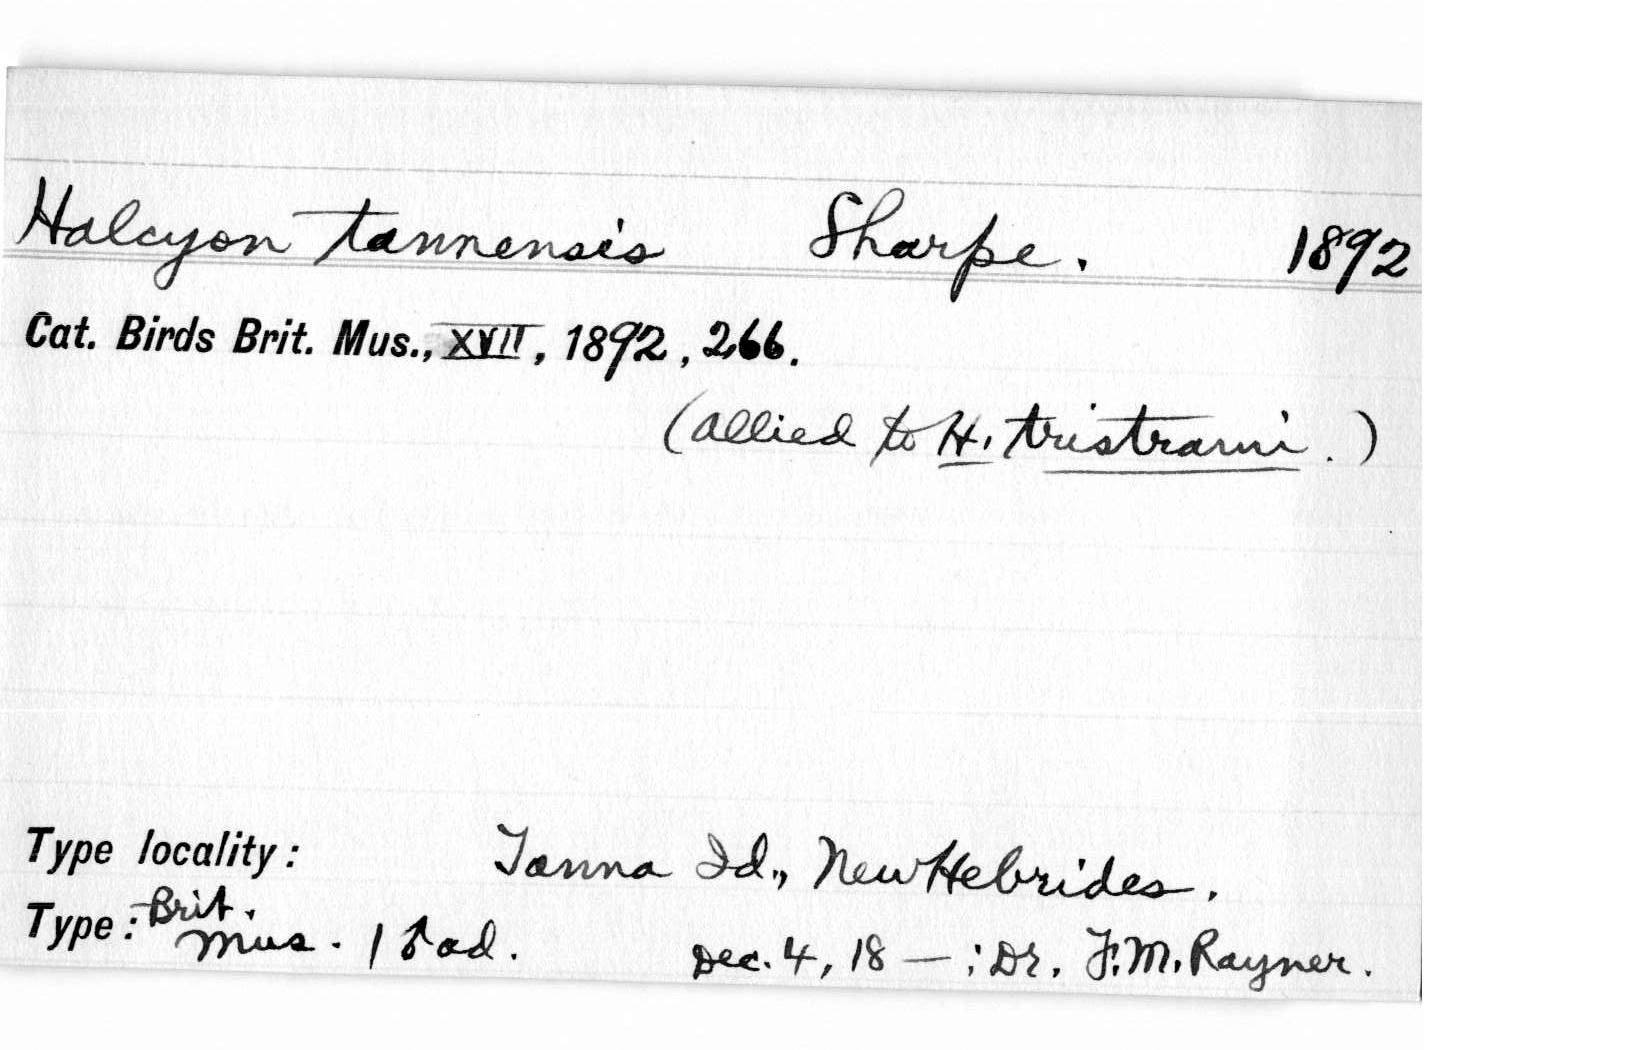 Halcyon tannensis Sharpe. 1892
Cat. Birds Brit. Mus., XVII, 1892, 266.
(allied to H. tristrami.)
Type locality: Tanna Id., New Hebrides.
Type: Brit. Mus. 1 ♂ ad. Dec. 4, 18—; Dr. F. M. Rayner.